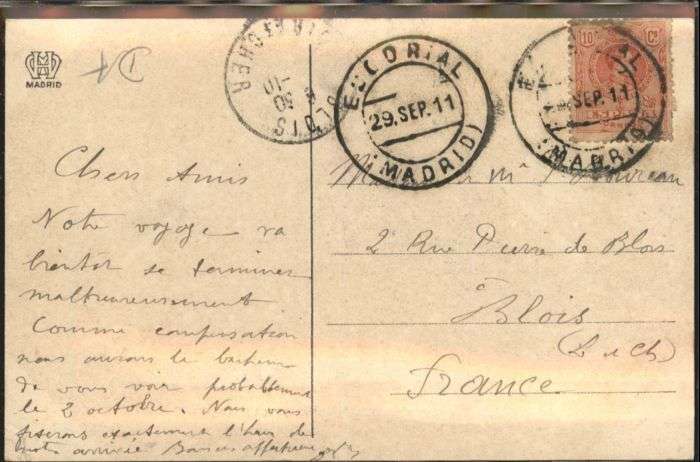 MADRID
BLOIS
CHER
ESCORIAL
29.SEP.11
(MADRID)
10 Cs
SEP.11
(MADRID)
Chers Amis
Notre voyage va
bientôt se terminer
malheureusement
Comme compensation
nous aurons le bonheur
de vous voir probablement
le 2 octobre. Nous vous
fixerons exactement l'heure de
notre arrivée Baisers affectueux
2 Rue Pierre de Blois
Blois
(L et Ch)
France